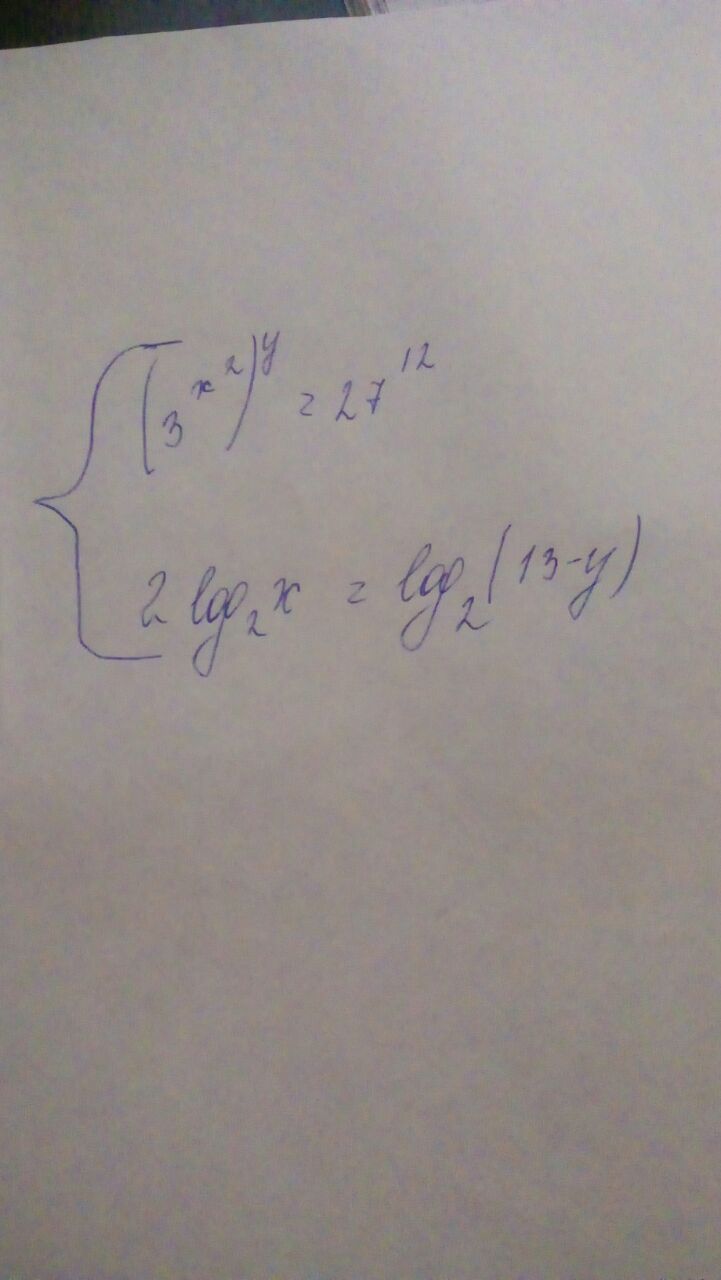 (3^{x^2})^y = 27^{12}
2 log_2 x = log_2 (13-y)